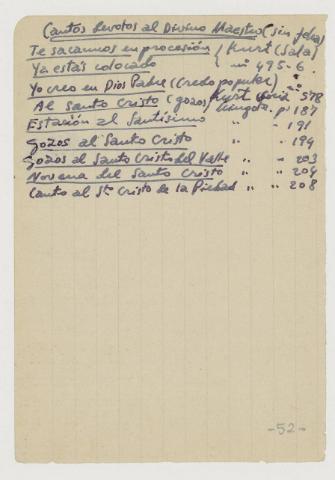 Cantos devotos al Divino Maestro (sin fecha)
Te sacamos en procesión } Kurt (Sala)
Ya estás colocado } nº 495-6
Yo creo en Dios Padre (Credo popular) " "
Al Santo Cristo (gozos) Kurt 578
p. 187
Estación al Santísimo " - 191
Gozos al Santo Cristo " - 194
Gozos al Santo Cristo del Valle " " 203
Novena del Santo Cristo " " 204
Canto al Sto Cristo de la Piedad " " 208
-52-